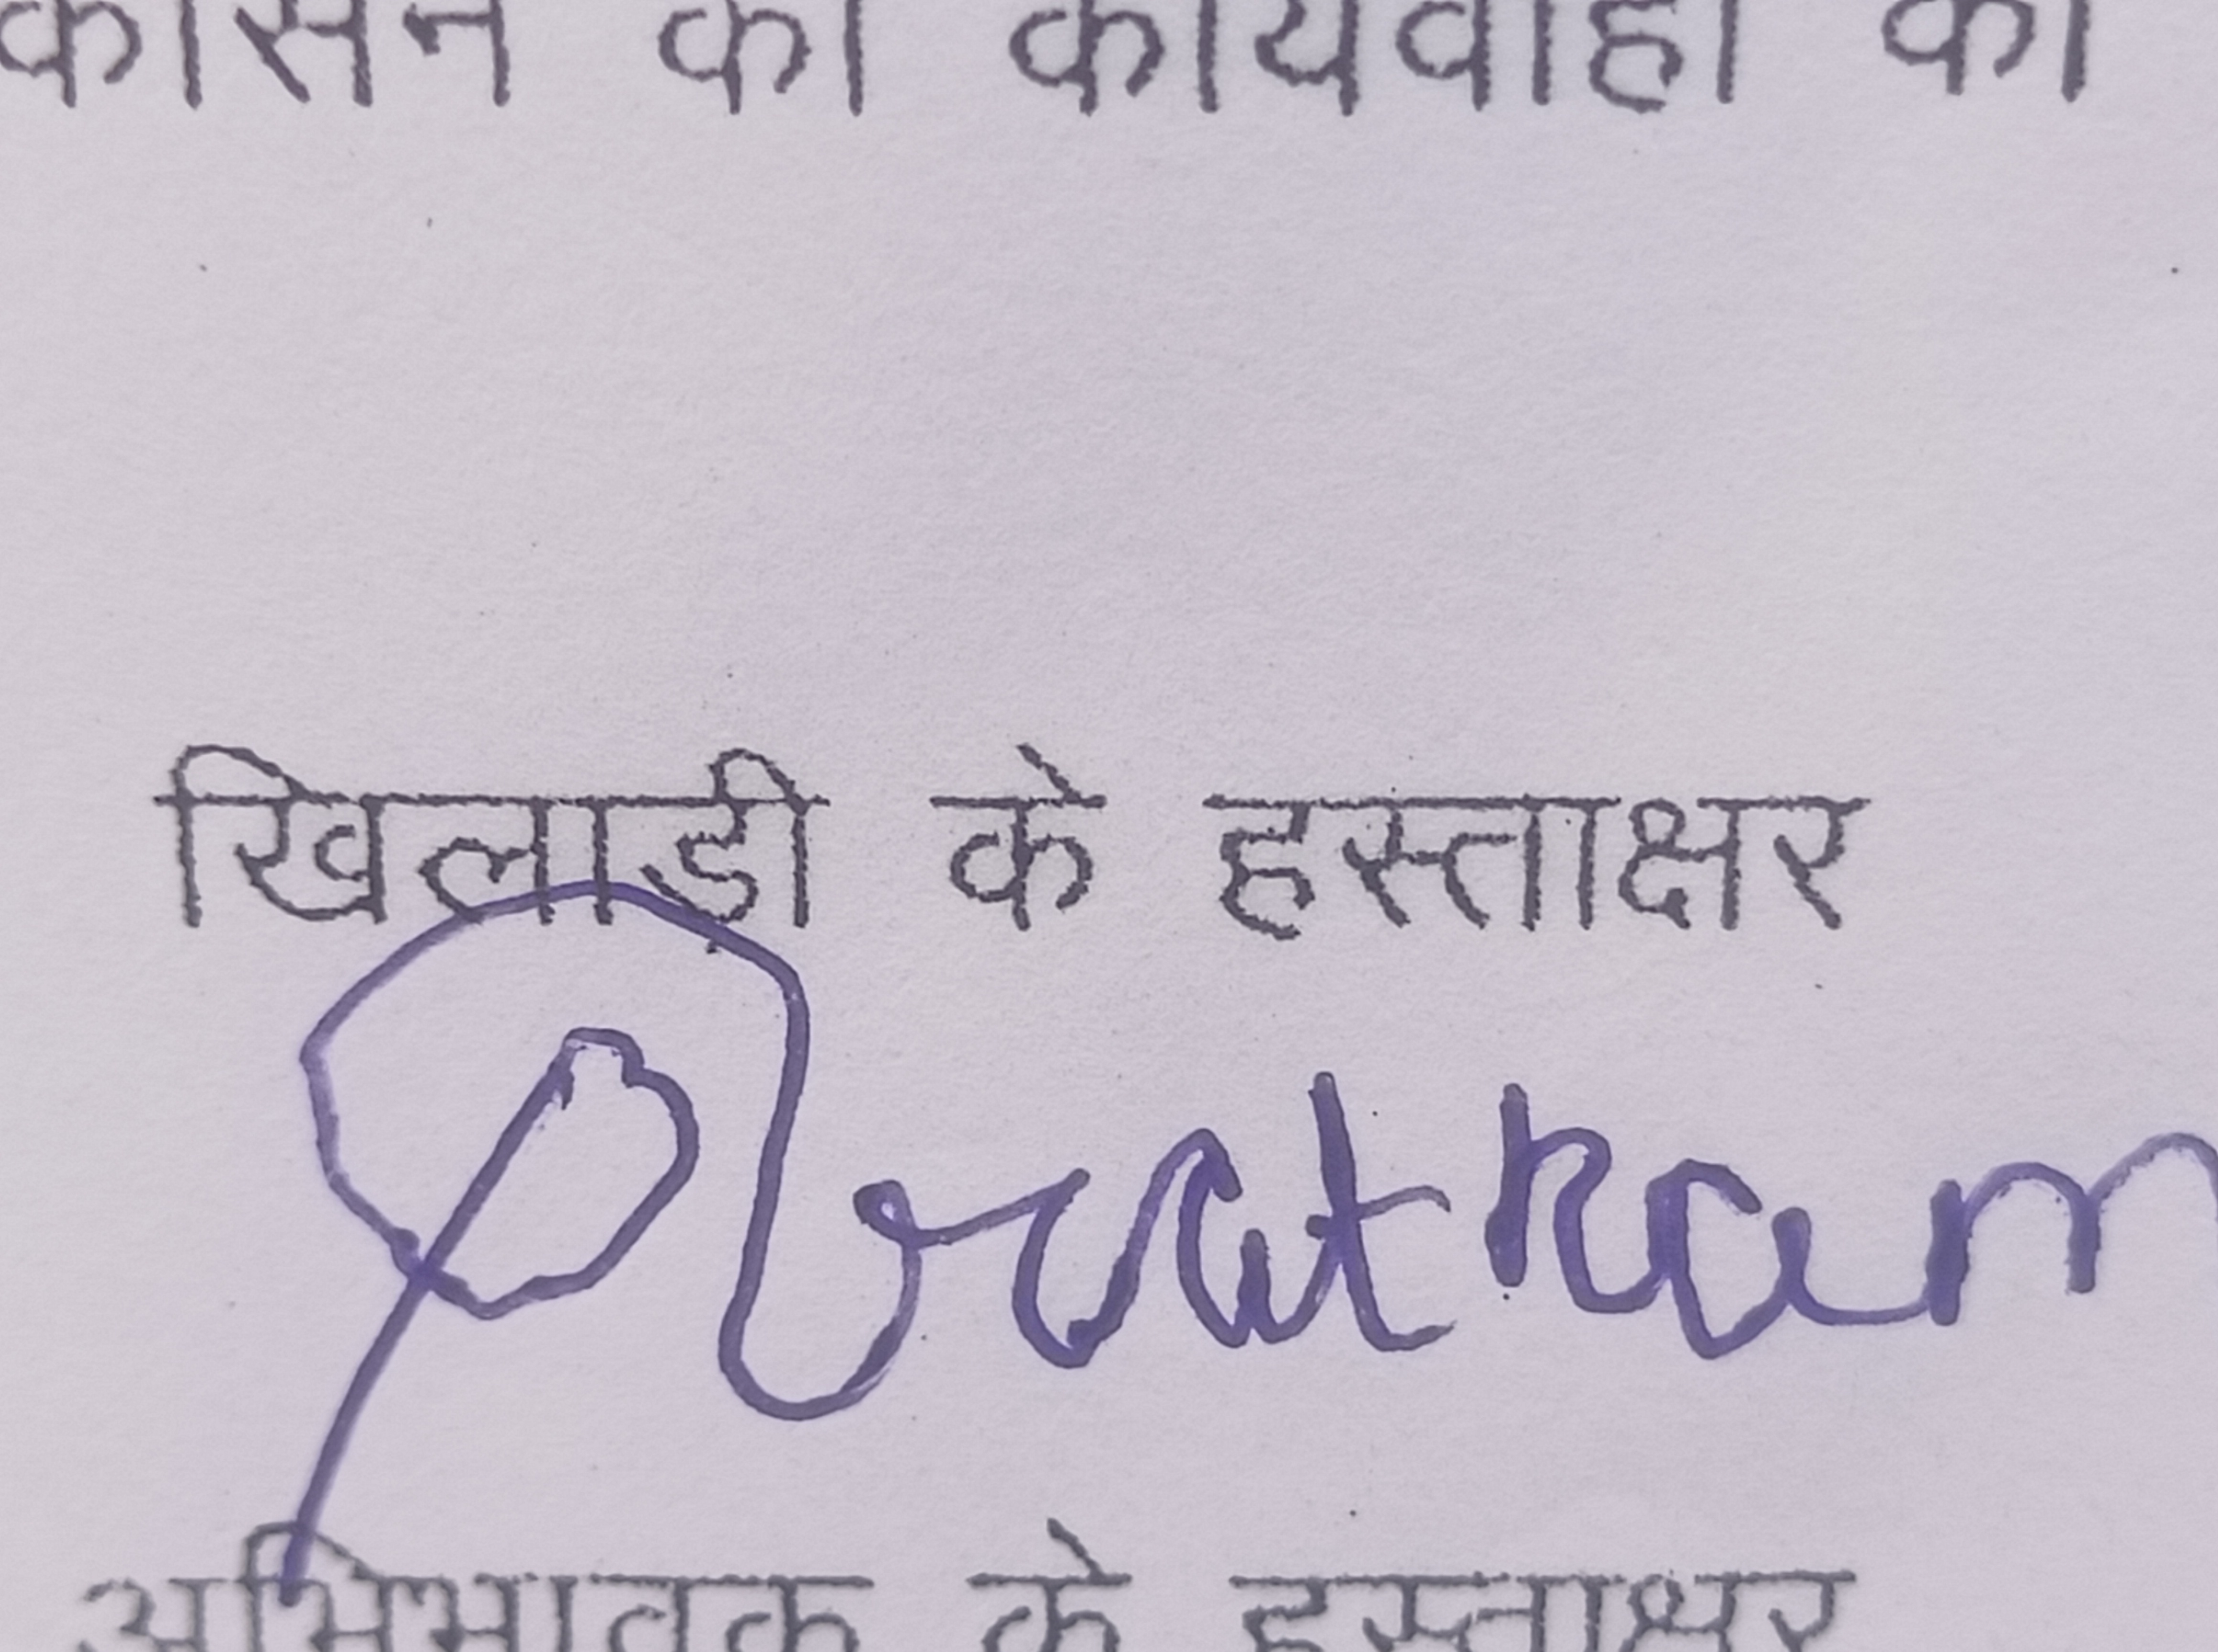 की कार्यवाही की
खिलाड़ी के हस्ताक्षर
Pratham
अभिभावक के हस्ताक्षर